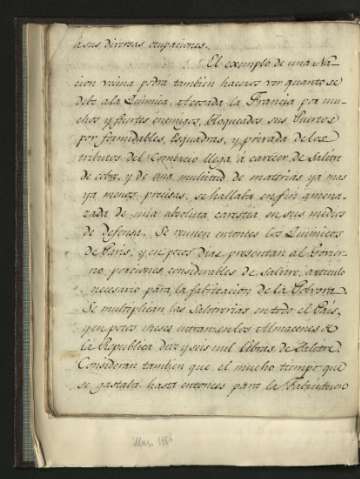 a sus diversas ocupaciones.
El exemplo de una Na-
cion vecina podra tambien haceros ver quanto se
debe a la Quimica, atacada la Francia por mu-
chos y fuertes enemigos, bloqueados sus Puertos
por formidables Esquadras, y privada de los
tributos del Comercio llega à carecer de Salitre
de cobre, y de una multitud de materias ya mas
ya menos precisas, se hallaba en fin amena-
zada de una absoluta carestia en sus medios
de defensa. Se reunen entonces los Quimicos
de Paris, y en pocos dias presentan al Govier-
no porciones considerables de salitre, articulo
necesario para la fabricacion de la Polvora.
Se multiplican las Salitrerias en todo el Pais,
y en pocos meses entraron en los Almacenes de
la Republica diez y seis mil libras de Salitre.
Consideran tambien que el mucho tiempo que
se gastaba hasta entonces para la Fabricacion